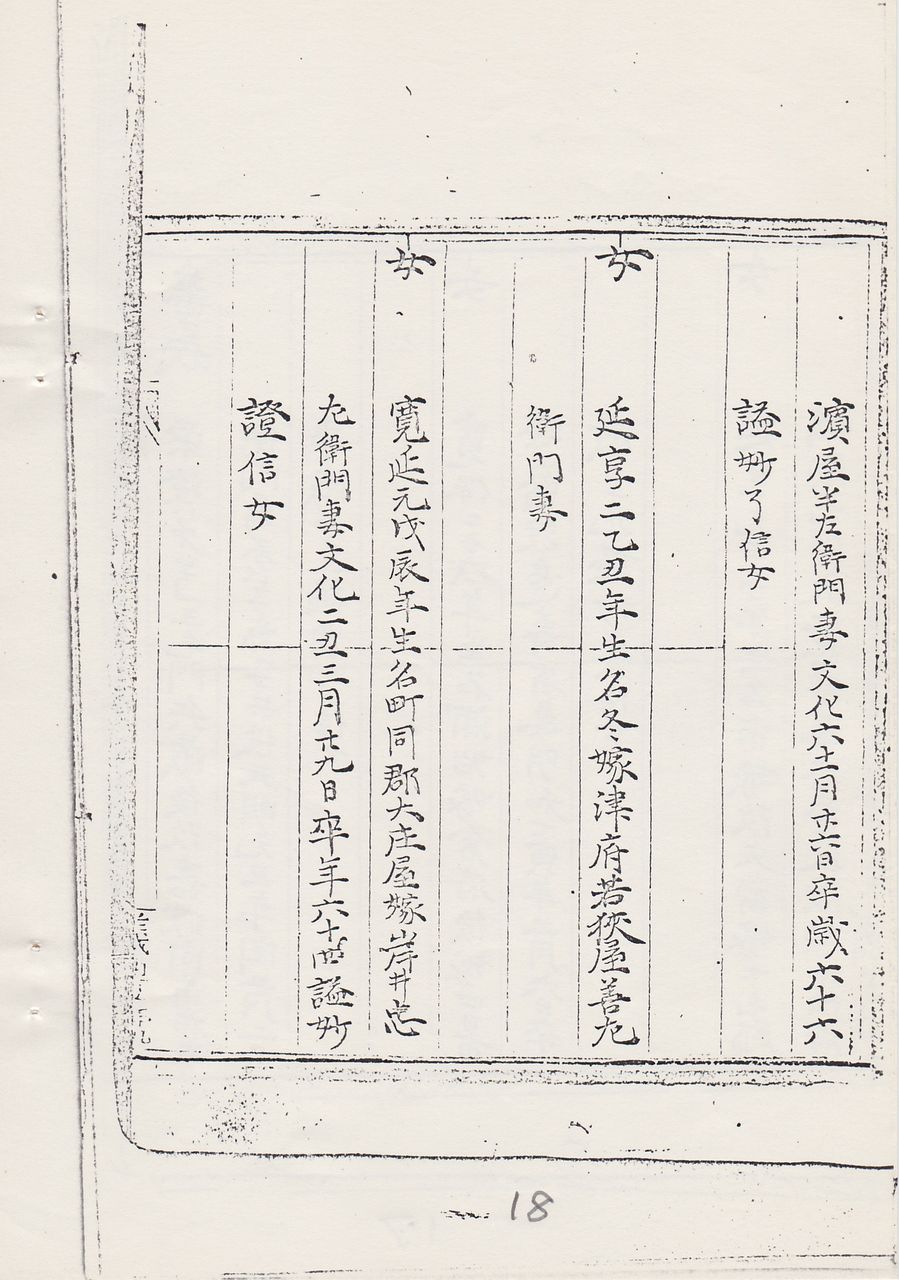 濱屋半左衛門妻文化六十一月廿六日卒歳六十六
謚妙了信女
女
延享二乙丑年生名冬嫁津府若狹屋善左
衛門妻
女
寛延元戊辰年生名町同郡大庄屋嫁岸井忠
左衛門妻文化二丑三月廿九日卒年六十四謚妙
證信女
18